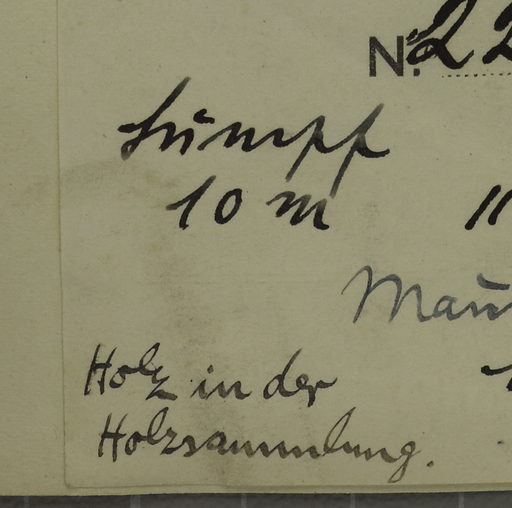 N.º 22
Sumpf
10 m 11
Mau
Holz in der
Holzsammlung.